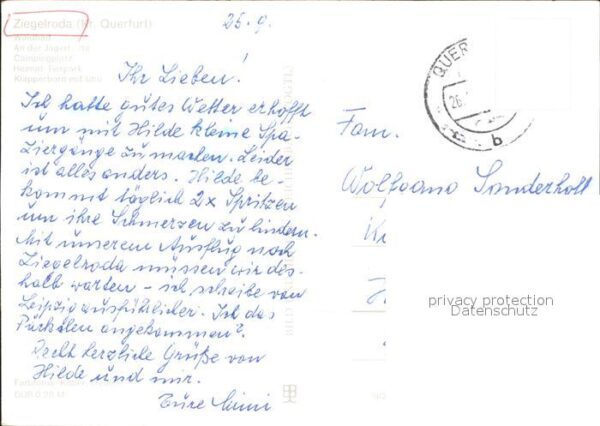 Ziegelroda (Kr. Querfurt)
Waldbad
An der Jägerhütte
Campingplatz
Heimat-Tierpark
25.9.
Ihr Lieben!
Ich hatte gutes Wetter erhofft
um mit Hilde kleine Spa-
ziergänge zu machen. Leider
ist alles anders. Hilde be-
kommt täglich 2x Spritzen
um ihre Schmerzen zu lindern.
Mit unserem Ausflug nach
Ziegelroda müssen wir des-
halb warten – ich schreibe von
Leipzig ausführlicher. Ist das
Päckchen angekommen?
Recht herzliche Grüße von
Hilde und mir.
Eure Mimi
QUER
26.
b
Fam.
Wolfgang Sonderholl
privacy protection
Datenschutz